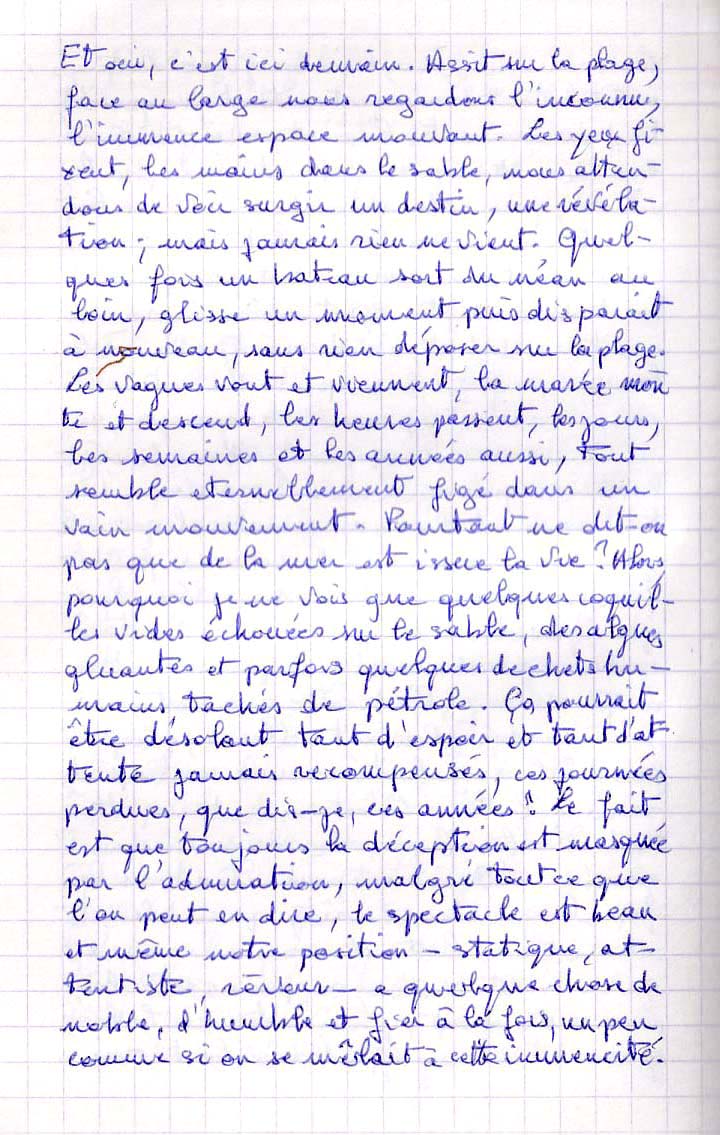 Et oui, c'est ici demain. Assit sur la plage,
face au large nous regardons l'inconnu,
l'immence espace mouvant. Les yeux fi-
xent, les mains dans le sable, nous atten-
dons de voir surgir un destin, une révéla-
tion ; mais jamais rien ne vient. Quel-
ques fois un bateau sort du néan au
loin, glisse un moment puis disparait
à nouveau, sans rien déposer sur la plage.
Les vagues vont et viennent, la marée mon
te et descend, les heures passent, les jours,
les semaines et les années aussi, tout
semble eternellement figé dans un
vain mouvement. Pourtant ne dit-on
pas que de la mer est issue la vie ? Alors,
pourquoi je ne vois que quelques coquil-
les vides échouées sur le sable, des algues
gluantes et parfois quelques dechets hu-
mains tachés de pétrole. Ça pourrait
être désolant tant d'espoir et tant d'at-
tente jamais recompensés, ces journées
perdues, que dis-je, ces années ! Le fait
est que toujours la déception est masquée
par l'admiration, malgré tout ce que
l'on peut en dire, le spectacle est beau
et même notre position - statique, at-
tentiste, rêveur - a quelque chose de
noble, d'humble et fier à la fois, un peu
comme si on se mêlait à cette immencité.